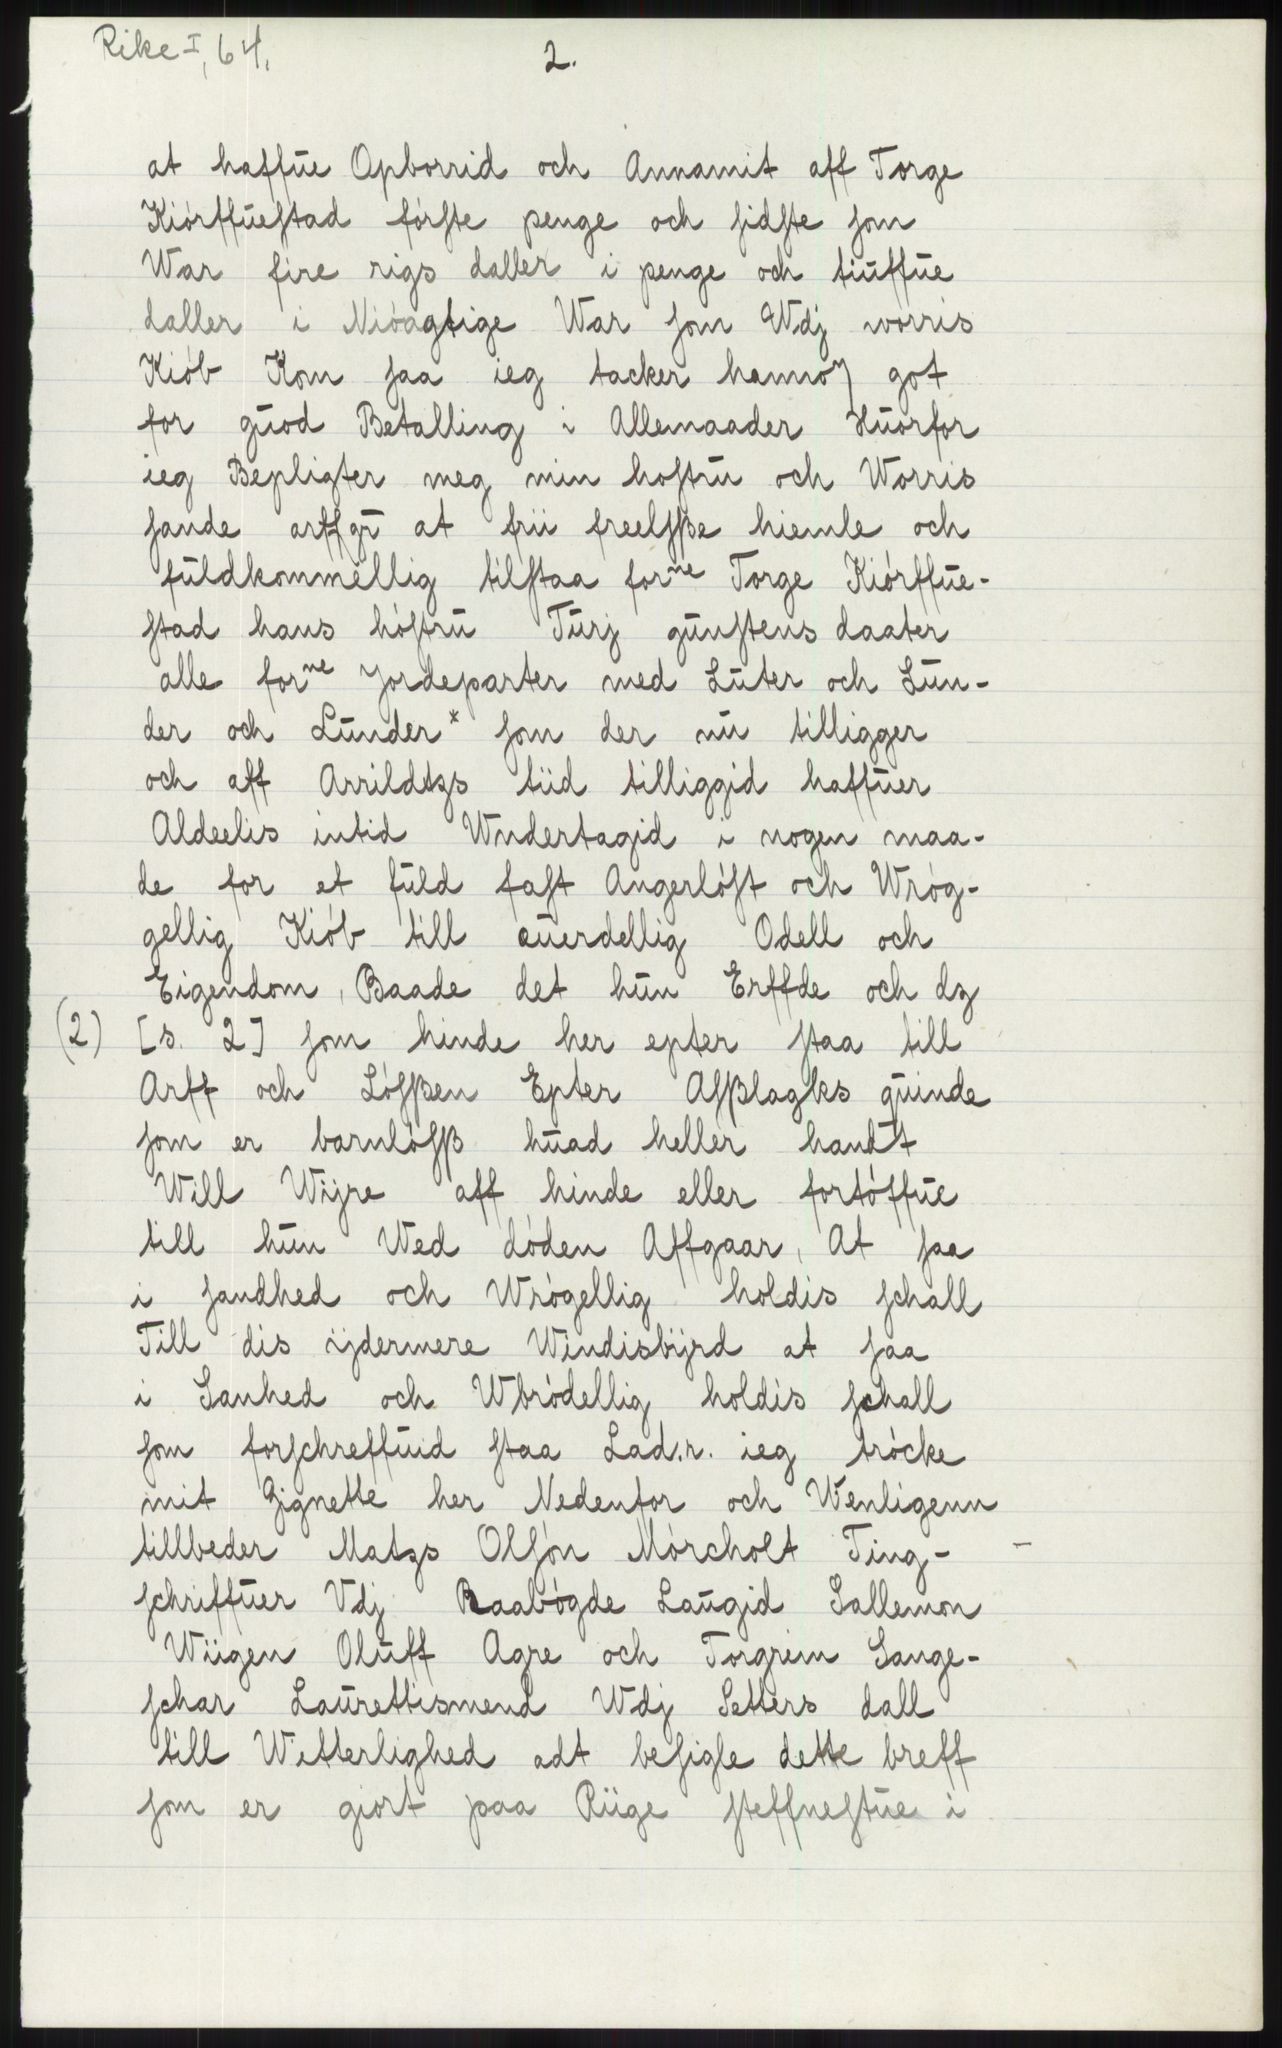 Rike I, 64.
2.
at haffue Opborrid och Annamit aff Torge
Kiórffuestad fórste penge och sidste som
War fire rigs daller i penge och tiuffue
daller i Nióagtige War som Wdj worris
Kiób Kom saa ieg tacker hanno got
for guod Betalling i Allemaader Huorfor
ieg Bepligter meg min hostru och Worris
sande arffgr at frii freelsße hiemle och
fuldkommellig tilstaa forne Torge Kiórffue-
stad hans hóstru Turj gunstens daater
alle forne Jordeparter med Luter och Lun-
der och Lunder* som der nu tilligger
och aff Arrildtzs tiid tilliggid haffuer
Aldeelis intid Wndertagid i nogen maa-
de for et fuld fast Angerlóst och Wróg-
gellig Kiób till euerdellig Odell och
Eigendom, Baade det hun Erffde och dz
(2) [s. 2] som hinde her epter staa till
Arff och Lósßen Epter Asßlagks quinde
som er barnlósß huad heller handt
Will Wijre aff hinde eller fortóffue
till hun Wed dóden Affgaar, At saa
i sandhed och Wrógellig holdis schall
Till dis ijdermere Windisbijrd at saa
i Sanhed och Wbródellig holdis schall
som forschreffuid staa Lad.r. ieg trócke
mit Zignette her Nedenfor och Wenligenn
tillbeder Matzs Olsón Mórcholt Ting-
schriffuer Vdj Raabógde Laugid Sallemon
Wiigen Oluff Agre och Torgrim Lange-
schar Laurettismend Wdj Setters dall
till Witterlighed adt besigle dette breff
som er giort paa Riige steffnestue i